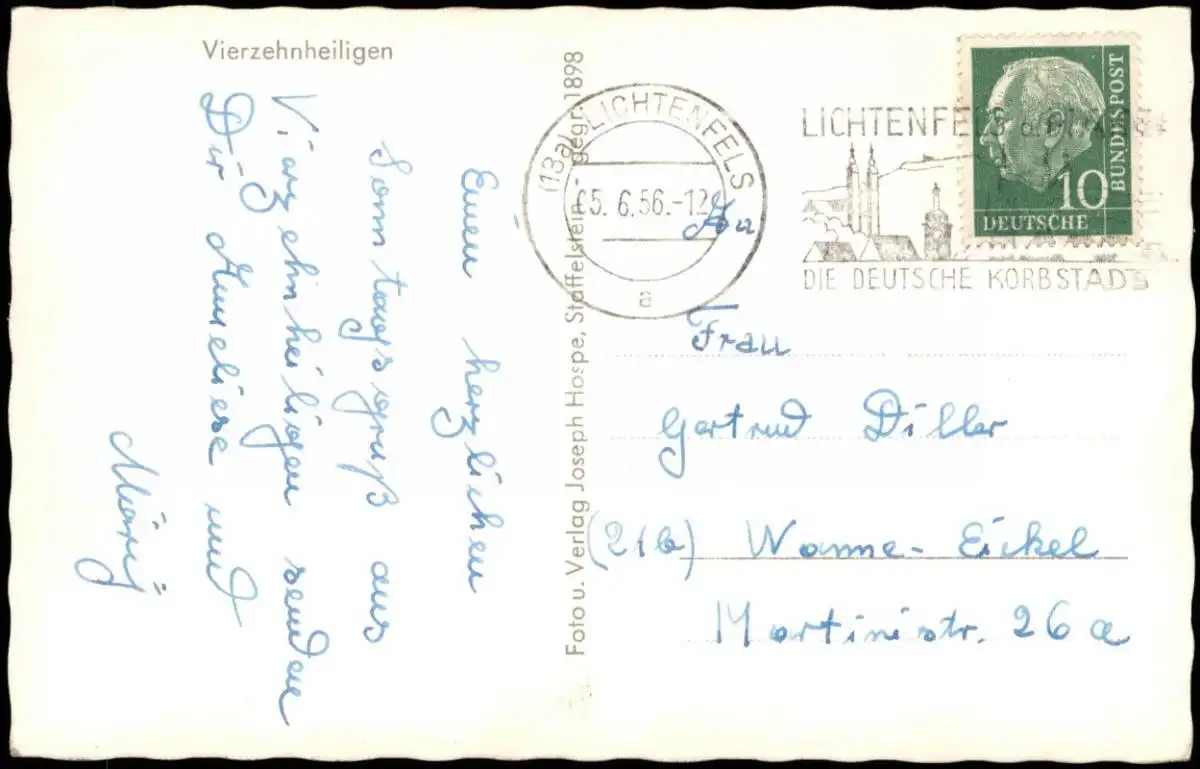 Vierzehnheiligen
Einen herzlichen
Sonntagsgruß aus
Vierzehnheiligen senden
Dir Anneliese und
Foto u. Verlag Joseph Hospe, Staffelstein - gegr. 1898
(13a) LICHTENFELS
5. 6. 56.-12
a
LICHTENFELS
DIE DEUTSCHE KORBSTADT
10
DEUTSCHE
BUNDESPOST
An
Frau
Gertrud Diller
(21b) Wanne-Eickel
Martinistr. 26a